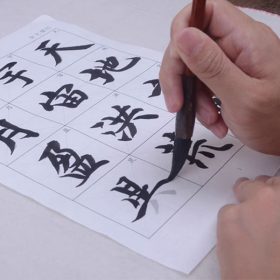 天地
宇宙洪荒
月盈昃